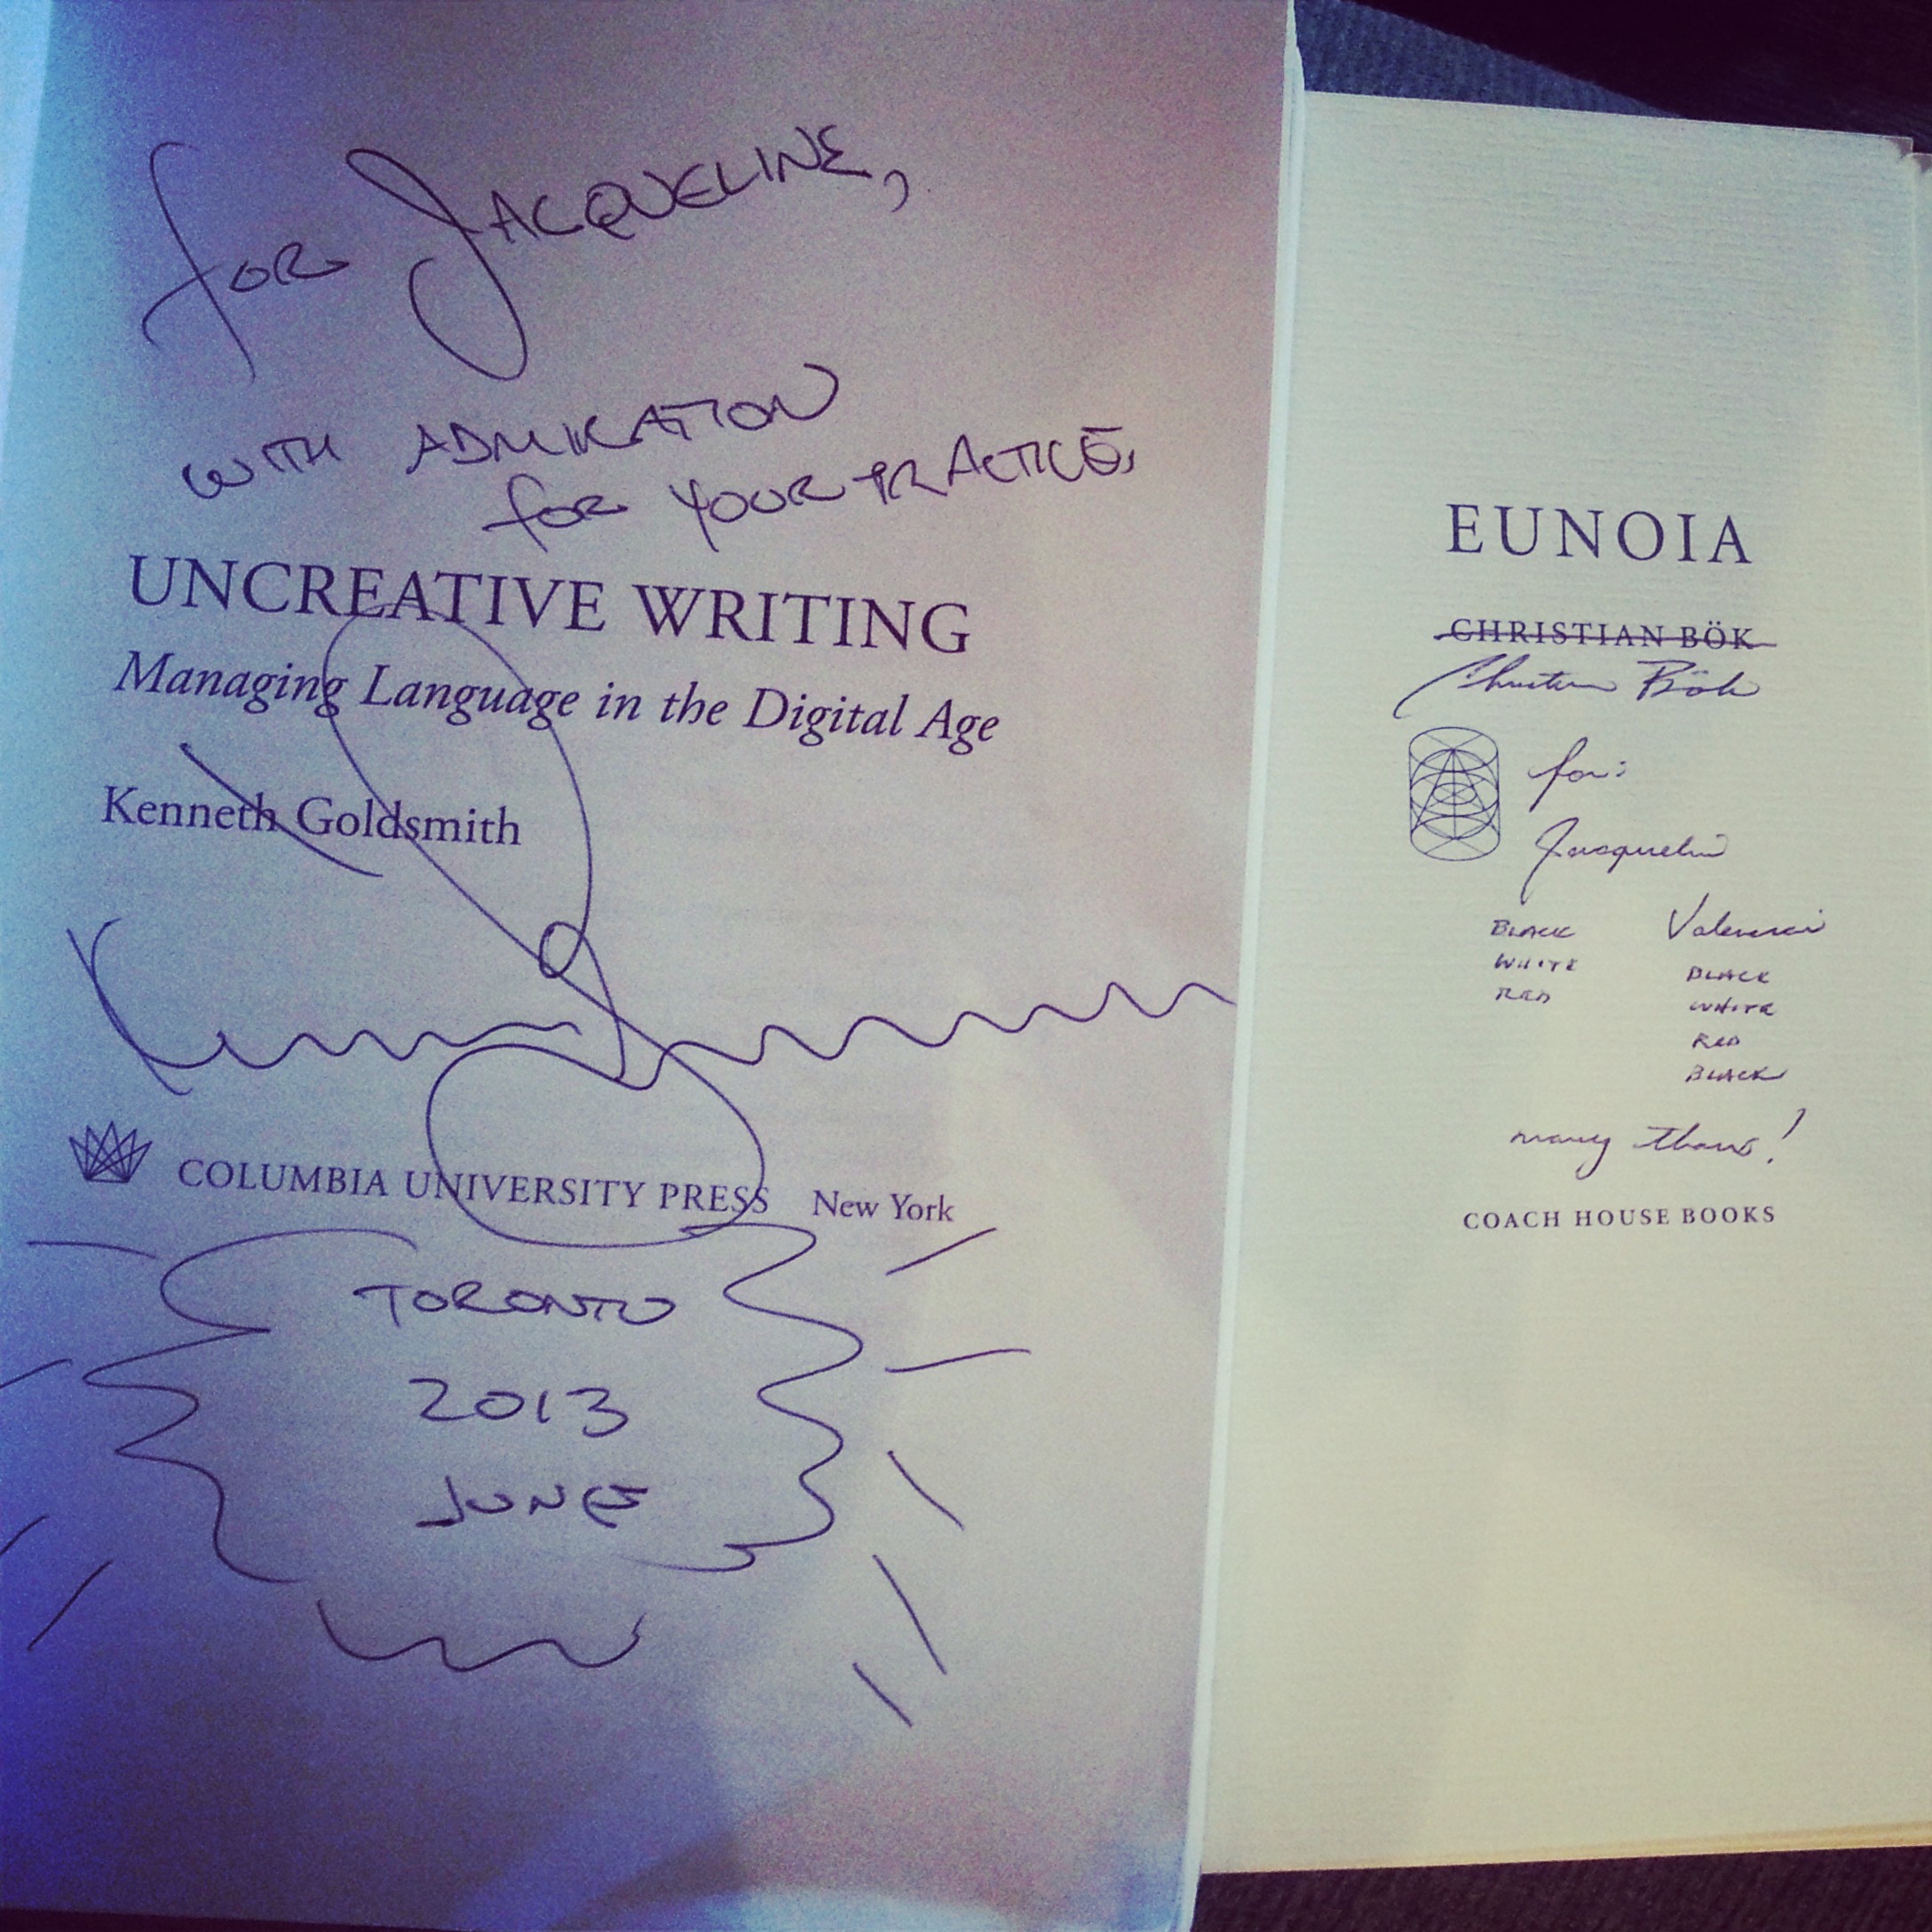 for JACQUELINE,
WITH ADMIRATION
for YOUR PRACTICE,
UNCREATIVE WRITING
Managing Language in the Digital Age
Kenneth Goldsmith
COLUMBIA UNIVERSITY PRESS New York
TORONTO
2013
JUNE
EUNOIA
CHRISTIAN BÖK
Christian Bök
for:
Jacqueline
Valencia
BLACK
WHITE
RED
BLACK
WHITE
RED
BLACK
many thanx!
COACH HOUSE BOOKS